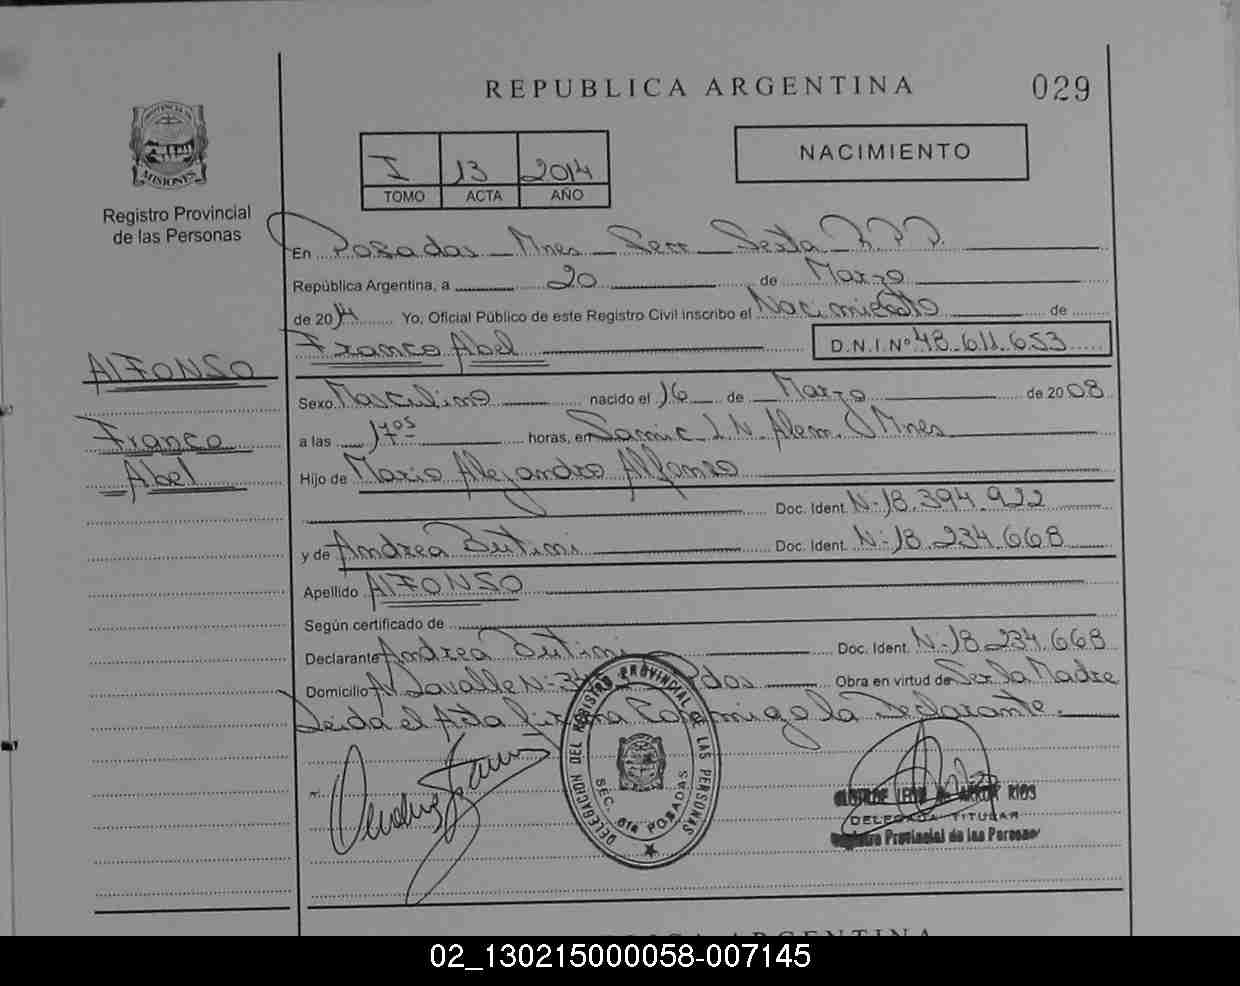 REPUBLICA ARGENTINA
029
PROVINCIA DE
MISIONES
Registro Provincial
de las Personas
I 13 2014
TOMO ACTA AÑO
NACIMIENTO
En Posadas Mnes Secc Sexta R.P.P.
República Argentina, a 20 de Marzo
de 2014 Yo, Oficial Público de este Registro Civil inscribo el Nacimiento de
Franco Abel D.N.I.Nº 48.611.653
ALFONSO
Franco
Abel
Sexo Masculino nacido el 16 de Marzo de 2008
a las horas, en Samic L.N. Alem. Mnes
Hijo de Mario Alejandro Alfonso
Doc. Ident. N- 18.394.922
y de Andrea Doc. Ident. N- 18.234.668
Apellido ALFONSO
Según certificado de
Declarante Andrea Doc. Ident. N- 18.234.668
Domicilio Av Lavalle N- Pdas Obra en virtud de Ser la Madre
Leida el Acta Firma Conmigo la Declarante.
DELEGACION DEL REGISTRO PROVINCIAL DE LAS PERSONAS
SEC. 6ta POSADAS
RIOS
DELEGADA TITULAR
Registro Provincial de las Personas
REPUBLICA ARGENTINA
02_130215000058-007145